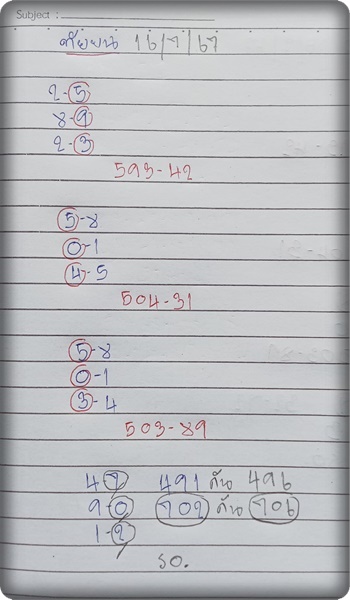 Subject :
ทัยยน 16/7/67
2-5
8-9
2-3
593-42
5-8
0-1
4-5
504-31
5-8
0-1
3-4
503-89
4-7 491 กัน 496
9-0 702 กัน 706
1-2
รอ.